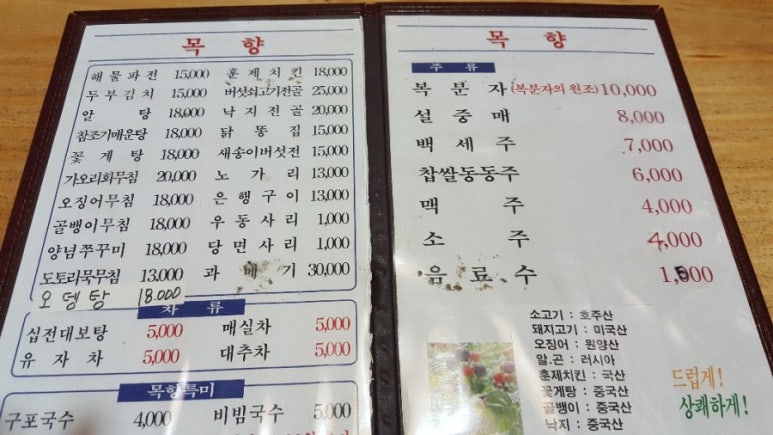 목 향
해물파전 15,000 훈제치킨 18,000
두부김치 15,000 버섯쇠고기전골 25,000
알 탕 18,000 낙지전골 20,000
참조기매운탕 18,000 닭 똥 집 15,000
꽃 게 탕 18,000 새송이버섯전 15,000
가오리회무침 20,000 노 가 리 13,000
오징어무침 18,000 은 행 구 이 13,000
골뱅이무침 18,000 우 동 사 리 1,000
양념쭈꾸미 18,000 당 면 사 리 1,000
도토리묵무침 13,000 과 메 기 30,000
오뎅탕 18.000
차 류
십전대보탕 5,000 매실차 5,000
유 자 차 5,000 대추차 5,000
목향특미
구포국수 4,000 비빔국수 5,000
목 향
주 류
복 분 자(복분자의 원조) 10,000
설 중 매 8,000
백 세 주 7,000
찹쌀동동주 6,000
맥 주 4,000
소 주 4,000
음 료 수
소고기 : 호주산
돼지고기 : 미국산
오징어 : 원양산
알.곤 : 러시아
훈제치킨 : 국산
꽃게탕 : 중국산
골뱅이 : 중국산
낙지 : 중국산
드럽게!
상쾌하게!